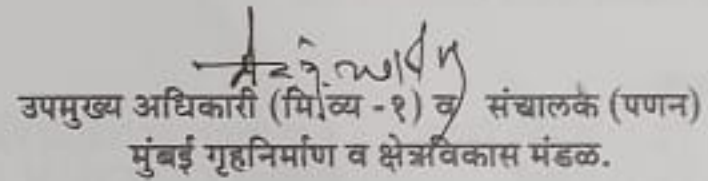 उपमुख्य अधिकारी (मि.व्य -१) व संचालक (पणन)
मुंबई गृहनिर्माण व क्षेत्रविकास मंडळ.